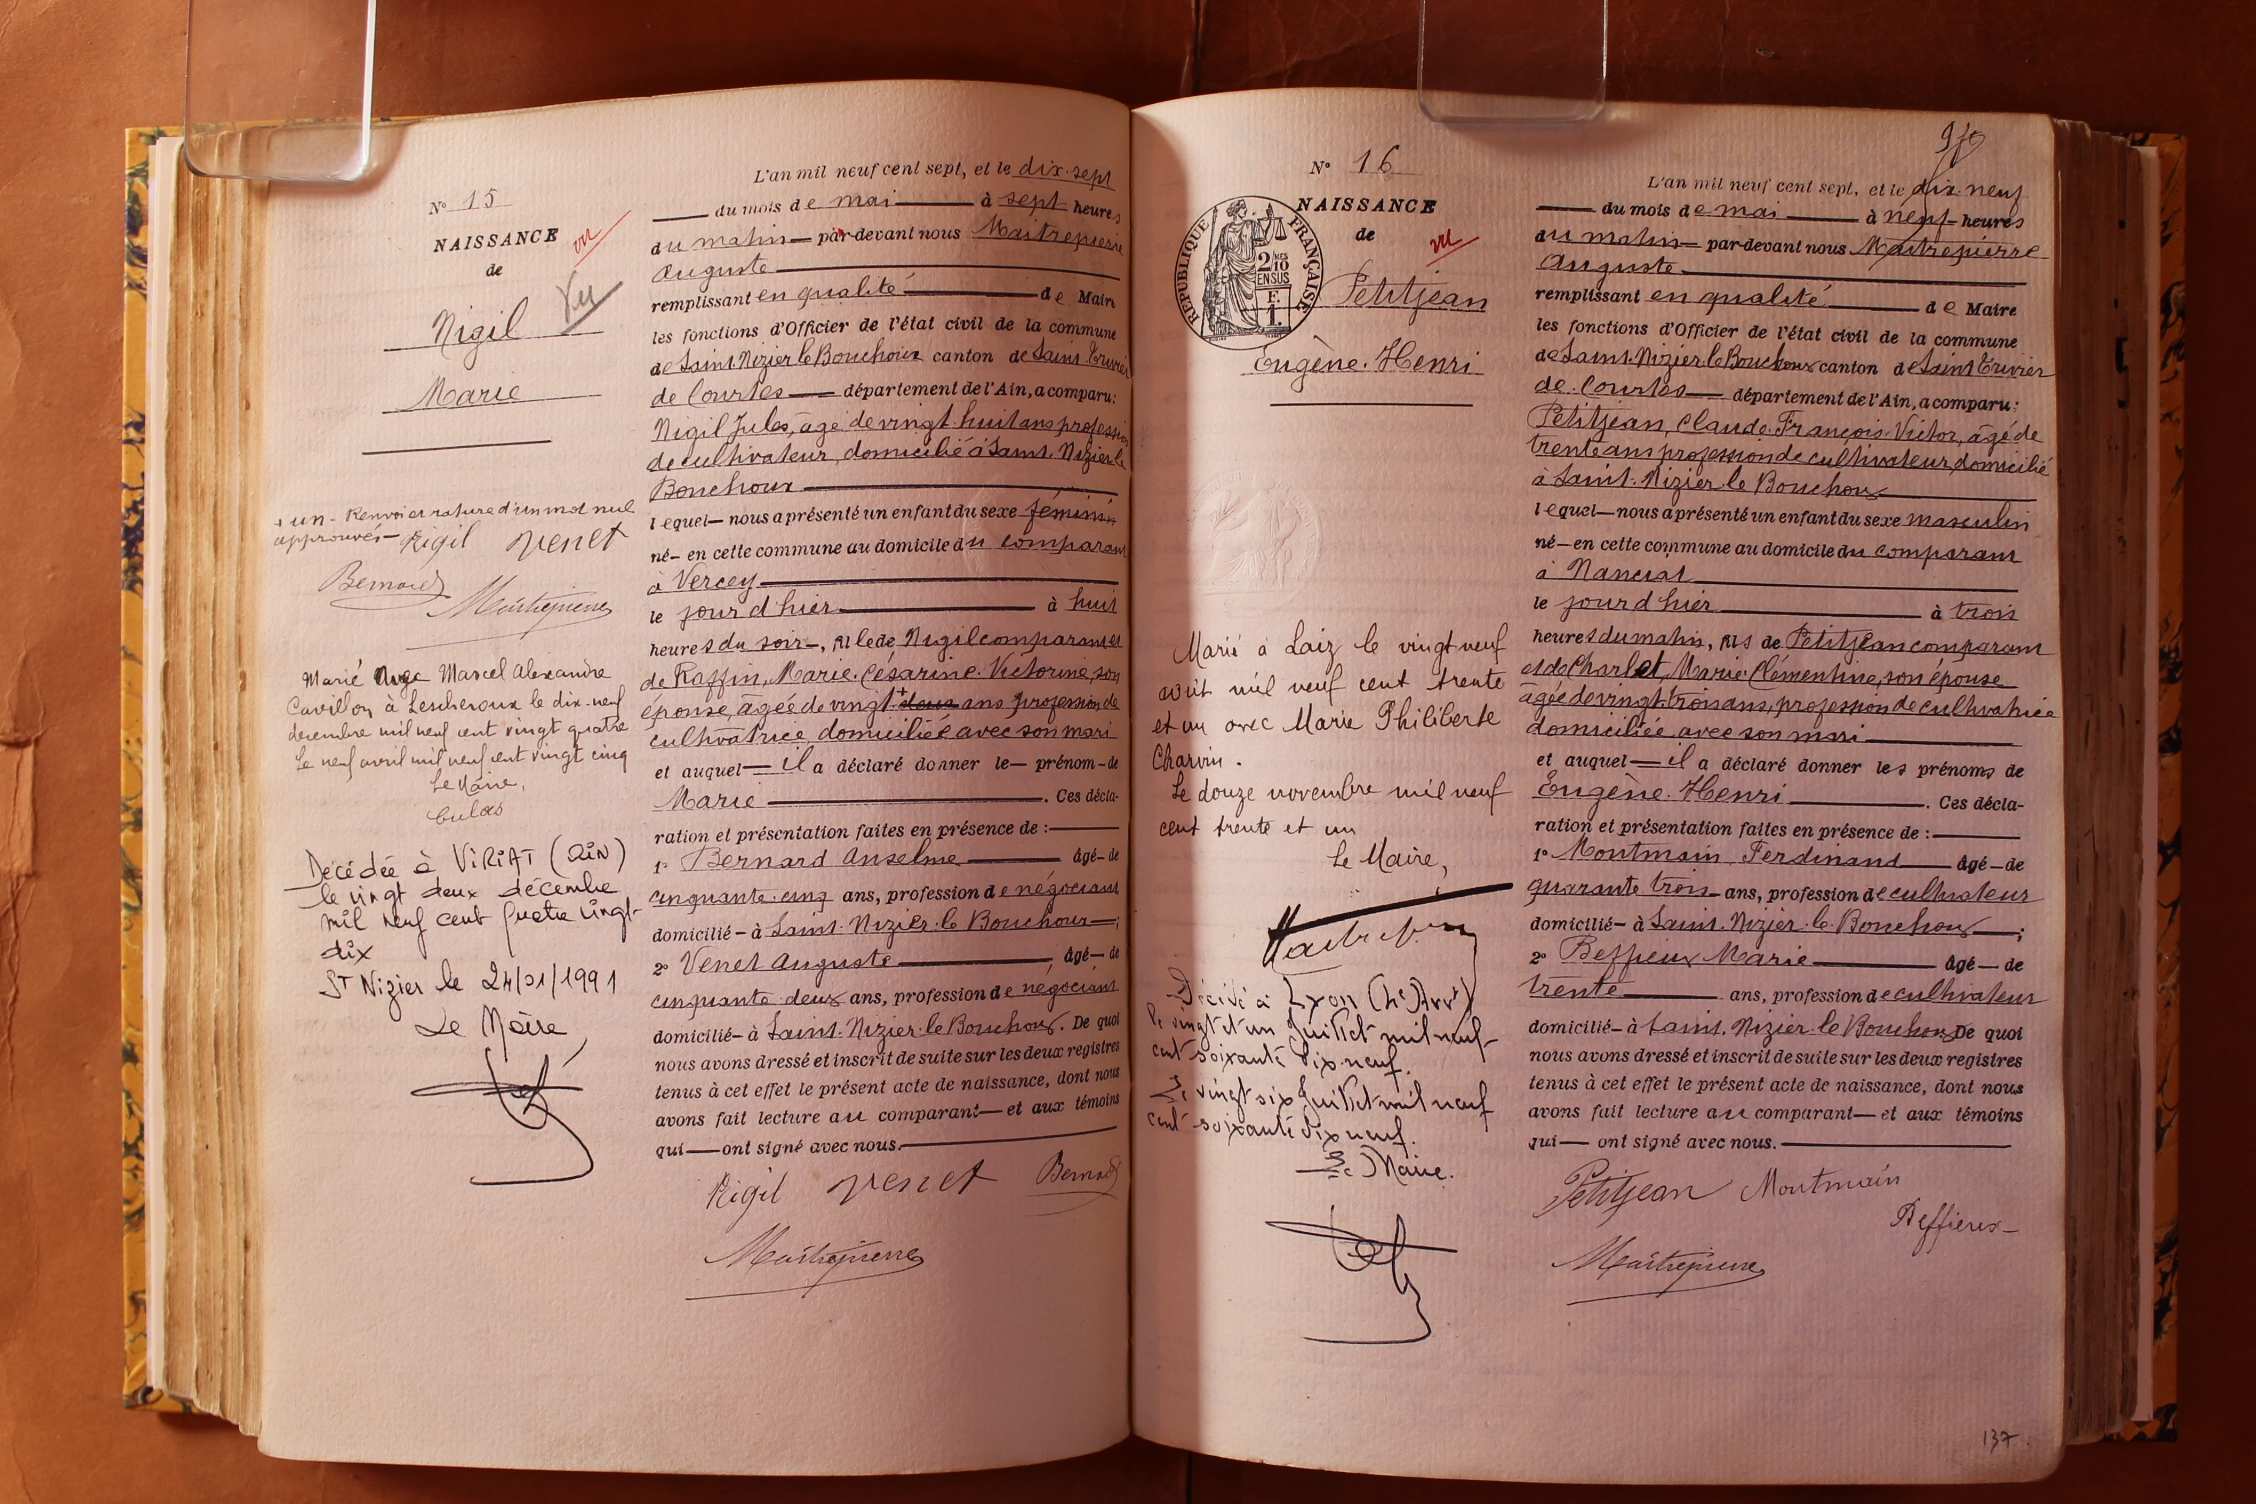 N° 15
NAISSANCE
de
vu
Vu
Nigil
Marie
+ un - Renvoi et rature d'un mot nul
approuvés - Rigil Venet
Bernard
Maitrepierre
Marié avec Marcel Alexandre
Cavillon à Lescheroux le dix-neuf
décembre mil neuf cent vingt quatre
Le neuf avril mil neuf cent vingt cinq
Le Maire,
Décédée à VIRIAT (AIN)
le vingt deux décembre
mil neuf cent quatre vingt-
dix
St Nizier le 24/01/1991
Le Maire
L'an mil neuf cent sept, et le dix-sept
du mois de mai à sept heures
du matin par-devant nous Maitrepierre
Auguste
remplissant en qualité de Maire
les fonctions d'Officier de l'état civil de la commune
de Saint-Nizier-le-Bouchoux canton de Saint Trivier
de Courtes département de l'Ain, a comparu:
Nigil Jules, âgé de vingt-huit ans profession
de cultivateur, domicilié à Saint-Nizier-le
Bouchoux
lequel nous a présenté un enfant du sexe féminin
né en cette commune au domicile du comparant
à Vercey
le jour d'hier à huit
heures du soir, fille de Nigil comparant et
de Raffin, Marie-Césarine-Victorine, son
épouse, âgée de vingt + deux ans profession de
cultivatrice domiciliée avec son mari
et auquel il a déclaré donner le prénom de
Marie. Ces décla-
ration et présentation faites en présence de :
1° Bernard Anselme âgé de
cinquante-cinq ans, profession de négociant
domicilié à Saint-Nizier-le-Bouchoux ;
2° Venet Auguste, âgé de
cinquante-deux ans, profession de négociant
domicilié à Saint-Nizier-le-Bouchoux. De quoi
nous avons dressé et inscrit de suite sur les deux registres
tenus à cet effet le présent acte de naissance, dont nous
avons fait lecture au comparant et aux témoins
qui ont signé avec nous.
Rigil Venet Bernard
Maitrepierre
N° 16
NAISSANCE
de
vu
RÉPUBLIQUE FRANÇAISE
2/10 MES
EN SUS
F.
1.
Petitjean
Eugène-Henri
Marié à Laiz le vingt neuf
août mil neuf cent trente
et un avec Marie Philiberte
Charvin.
Le douze novembre mil neuf
cent trente et un
Le Maire,
Maitrepierre
Décédé à Lyon (4e) Arrt)
le vingt et un Juillet mil neuf
cent soixante dix-neuf.
Le vingt six Juillet mil neuf
cent soixante dix neuf.
Le Maire.
L'an mil neuf cent sept, et le dix-neuf
du mois de mai à neuf heures
du matin par-devant nous Maitrepierre
Auguste
remplissant en qualité de Maire
les fonctions d'Officier de l'état civil de la commune
de Saint-Nizier-le-Bouchoux canton de Saint Trivier
de Courtes département de l'Ain, a comparu:
Petitjean, Claude-François-Victor, âgé de
trente ans profession de cultivateur, domicilié
à Saint-Nizier-le Bouchoux
lequel nous a présenté un enfant du sexe masculin
né en cette commune au domicile du comparant
à Nanciat
le jour d'hier à trois
heures du matin, fils de Petitjean comparant
et de Charlet, Marie-Clémentine, son épouse
âgée de vingt-trois ans, profession de cultivatrice
domiciliée avec son mari
et auquel il a déclaré donner les prénoms de
Eugène-Henri. Ces décla-
ration et présentation faites en présence de :
1° Montmain Ferdinand âgé de
quarante trois ans, profession de cultivateur
domicilié à Saint-Nizier-le-Bouchoux ;
2° Beffieux Marie âgé de
trente ans, profession de cultivateur
domicilié à Saint-Nizier-le-Bouchoux De quoi
nous avons dressé et inscrit de suite sur les deux registres
tenus à cet effet le présent acte de naissance, dont nous
avons fait lecture au comparant et aux témoins
qui ont signé avec nous.
Petitjean Montmain
Beffieux
Maitrepierre
137